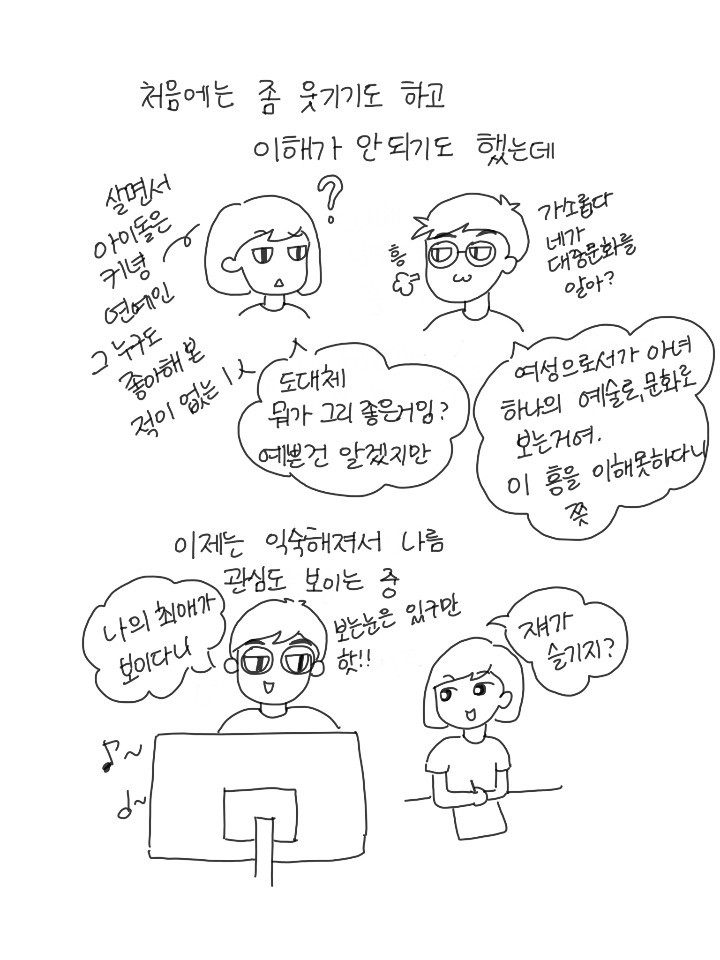 처음에는 좀 웃기기도 하고
이해가 안되기도 했는데
살면서
아이돌은
커녕
연예인
그 누구도
좋아해본
적이 없는 1人
?
흥
가소롭다
네가
대중문화를
알아?
도대체
뭐가 그리 좋은거임?
예쁜건 알겠지만
여성으로서가 아녀
하나의 예술로, 문화로
보는거여.
이 흥을 이해못하다니
쯧
이제는 익숙해져서 나름
관심도 보이는 중
나의 최애가
보이다니
보는눈은 있구만
핫!!
쟤가
슬기지?